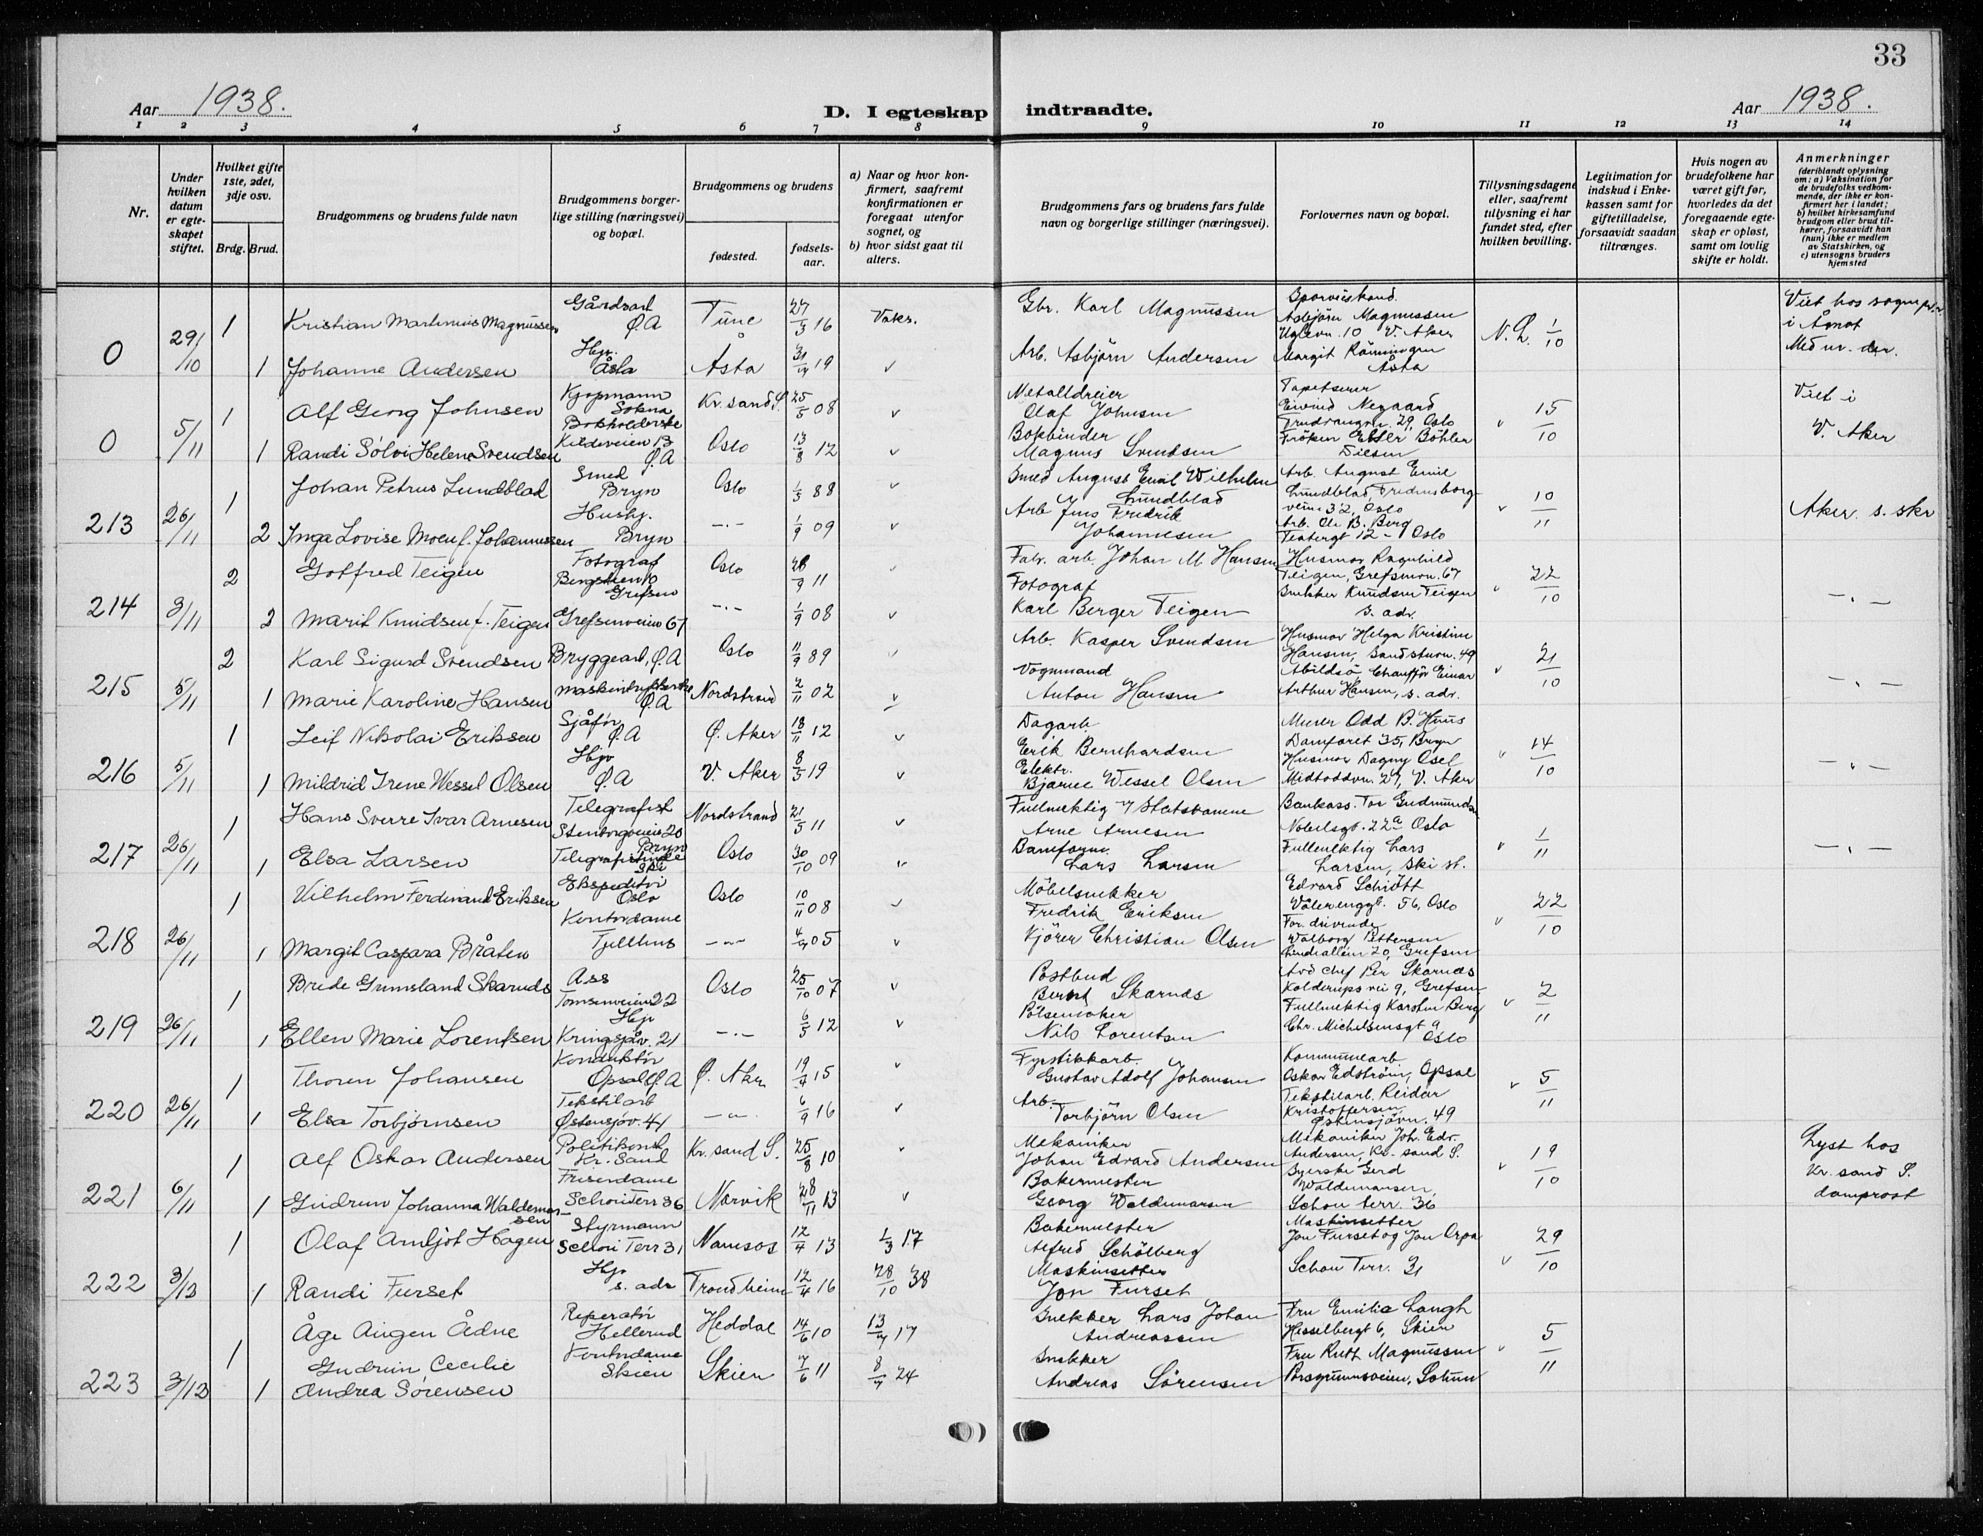 33
Aar 1938.
D. I egteskap indtraadte.
Aar 1938.
1 2 3 4 5 6 7 8 9 10 11 12 13 14
Nr.
Under hvilken datum er egteskapet stiftet.
Hvilket gifte 1ste, 2det, 3dje osv.
Brdg. Brud.
Brudgommens og brudens fulde navn
Brudgommens borgerlige stilling (næringsvei) og bopæl.
Brudgommens og brudens
fødested.
fødselsaar.
a) Naar og hvor konfirmert, saafremt konfirmationen er foregaat utenfor sognet, og
b) hvor sidst gaat til alters.
Brudgommens fars og brudens fars fulde navn og borgerlige stillinger (næringsvei).
Forlovernes navn og bopæl.
Tillysningsdagene eller, saafremt tillysning ei har fundet sted, efter hvilken bevilling.
Legitimation for indskud i Enkekassen samt for giftetilladelse, forsaavidt saadan tiltrænges.
Hvis nogen av brudefolkene har været gift før, hvorledes da det foregaaende egteskap er opløst, samt om lovlig skifte er holdt.
Anmerkninger
(deriblandt oplysning om: a) Vaksination for de brudefolks vedkommende, der ikke er konfirmert her i landet;
b) hvilket kirkesamfund brudgom eller brud tilhører, forsaavidt han (hun) ikke er medlem av Statskirken, og
c) utensogns bruders hjemsted
0 29/10 1 Kristian Martinius Magnussen Gårdsarb Ø.A Tune 27/3 16 Vaks. Gbr. Karl Magnussen Asbjörn Magnussen Uglevn. 10 V. Aker N. L. 1/10 Viet hos sognepr. i Åmot
1 Johanne Andersen Hjp. Åsta Åsta 19 v Arb. Asbjörn Andersen Margit Rönningen Åsta
0 5/11 1 Alf Georg Johnsen Kjøpmann Sokna Kr. sand S. 25/5 08 v Metalldreier Olaf Johnsen Tapetserer Eivind Negaard 29, Oslo v 15/10 Viet i V. Aker
1 Randi Sölvi Helene Svendsen Bokholderske Kildeveien 13 Ø.A Oslo 13/8 12 v Bokbinder Magnus Svendsen Fröken Böhler
213 26/11 1 Johan Petrus Lundblad Smed Bryn Oslo 1/5 88 v Smed August Emil Wilhelm Lundblad Arb. August Emil Lundblad, Fredensborgveien 32, Oslo v 10/11 Aker. s. skr
2 Inga Lovise Moen f. Johannessen Hushj. Bryn -"- 1/9 09 v Arb Jens Fredrik Johannesen Arb. Ole B. Berg Teatergt 12 - Oslo
214 3/11 2 Gotfred Teigen Fotograf Grefsen Oslo 28/9 11 v Fabr. arb Johan M. Hansen Husmor Ragnhild Teigen, Grefsenvn. 67 v 22/10 -"-
2 Marit Knudsen f. Teigen Grefsenveien 67 -"- 1/9 08 v Fotograf Karl Berger Teigen Snekker Knudsen Teigen s. adr.
215 5/11 2 Karl Sigurd Svendsen Bryggearb, Ø.A Oslo 11/9 89 v Arb. Kasper Svendsen Husmor Helga Kristine Hansen, Sandstuvn. 49 v 21/10 -"-
1 Marie Karoline Hansen Ø.A Nordstrand 2/11 02 v Vognmand Anton Hansen Abildsö Chauffør Einar Arthur Hansen, s. adr.
216 5/11 1 Leif Nikolai Eriksen Sjåför Ø.A Ø. Aker 18/11 12 v Dagarb. Erik Bernhardsen Murer Odd B. Huus Damfaret 35, Bryn v 14/10 -"-
1 Mildrid Irene Wessel Olsen Hjp Ø.A V. Aker 8/5 19 v Elektr. Bjarne Wessel Olsen Husmor Dagny Osel Midtoddvn. 27, V. Aker
217 26/11 1 Hans Sverre Ivar Arnesen Telegrafist Stenborgveien 20 Bryn Nordstrand 21/5 11 v Fullmektig v/ Statsbanene Arne Arnesen Bankass. Tor Gudmundsen Nobelsgt. 22a Oslo v 1/11 -"-
1 Elsa Larsen Telegrafistinde Ski Oslo 30/10 09 v Banform. Lars Larsen Fullmektig Lars Larsen, Ski st.
218 26/11 1 Vilhelm Ferdinand Eriksen Ekspeditör Oslo Oslo 10/11 08 v Möbelsnekker Fredrik Eriksen Edvard Schiött Vålerenggt. 56, Oslo v 22/10
1 Margit Caspara Bråten Kontordame Tjelthus -"- 05 v Kjörer Christian Olsen Forr.drivende Valborg Pettersen Lindealleen 20, Grefsen
219 26/11 1 Brede Grimsland Skarnds Ass Tomsenveien 22 Oslo 25/10 07 v Postbud Bernt Skarnæs Avd chef Per Skarnæs Kolderups vei 9, Grefsen v 2/11
1 Ellen Marie Lorentsen Hjp Kringsjåv. 21 -"- 6/5 12 v Pölsemaker Nils Lorentsen Fullmektig Karsten Berg Chr. Michelsensgt 9 Oslo
220 26/11 1 Thoren Johansen Konduktör Opsal Ø.A Ø. Aker 19/4 15 v Fyrstikkarb. Gustav Adolf Johansen Kommunearb Oskar Edström, Opsal v 5/11
1 Elsa Torbjørnsen Tekstilarb Østensjøv. 41 -"- 6/9 16 v Arb. Torbjörn Olsen Tekstilarb. Reidar Kristoffersen Østensjøvn. 49
221 6/11 1 Alf Oskar Andersen Politikonst Kr. Sand Kr. sand S. 25/8 10 v Mekaniker Johan Edvard Andersen Mekaniker Joh. Edv. Andersen, Kr. sand S. v 19/10 Lyst hos Kr. sand S. domprost
1 Gudrun Johanna Waldemarsen Friserdame Schouterr 36 Narvik 28/11 13 v Bakermester Georg Waldemarsen Syerske Gerd Waldemarsen, Schou terr. 36
222 3/12 1 Olaf Arnljot Hagen Styrmann Schou Terr 31 Namsos 12/4 13 1/3 17 Bakemester Alfred Schölberg Maskinsetter Jon Furset og Jon Orpa v 29/10
1 Randi Furset Hjp s. adr Trondheim 12/4 16 28/10 38 Maskinsetter Jon Furset Schou Terr. 31
223 3/12 1 Åge Augen Ådne Reperatör Hellerud Heddal 14/6 10 13/7 17 Snekker Lars Johan Andreassen Fru Emilie Langh Hesselbergt 6, Skien v 5/11
1 Gudrun Cecilie Andrea Sørensen Kontordame Skien Skien 7/6 11 8/7 24 Snekker Andreas Sörensen Fru Ruth Magnussen Porsgrunnsveien,